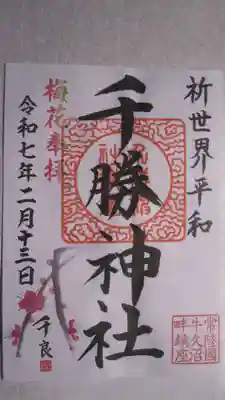 祈世界平和
千勝神社
梅花奉拝
令和七年二月十三日
千良
常陸國
牛久沼
畔鎮座